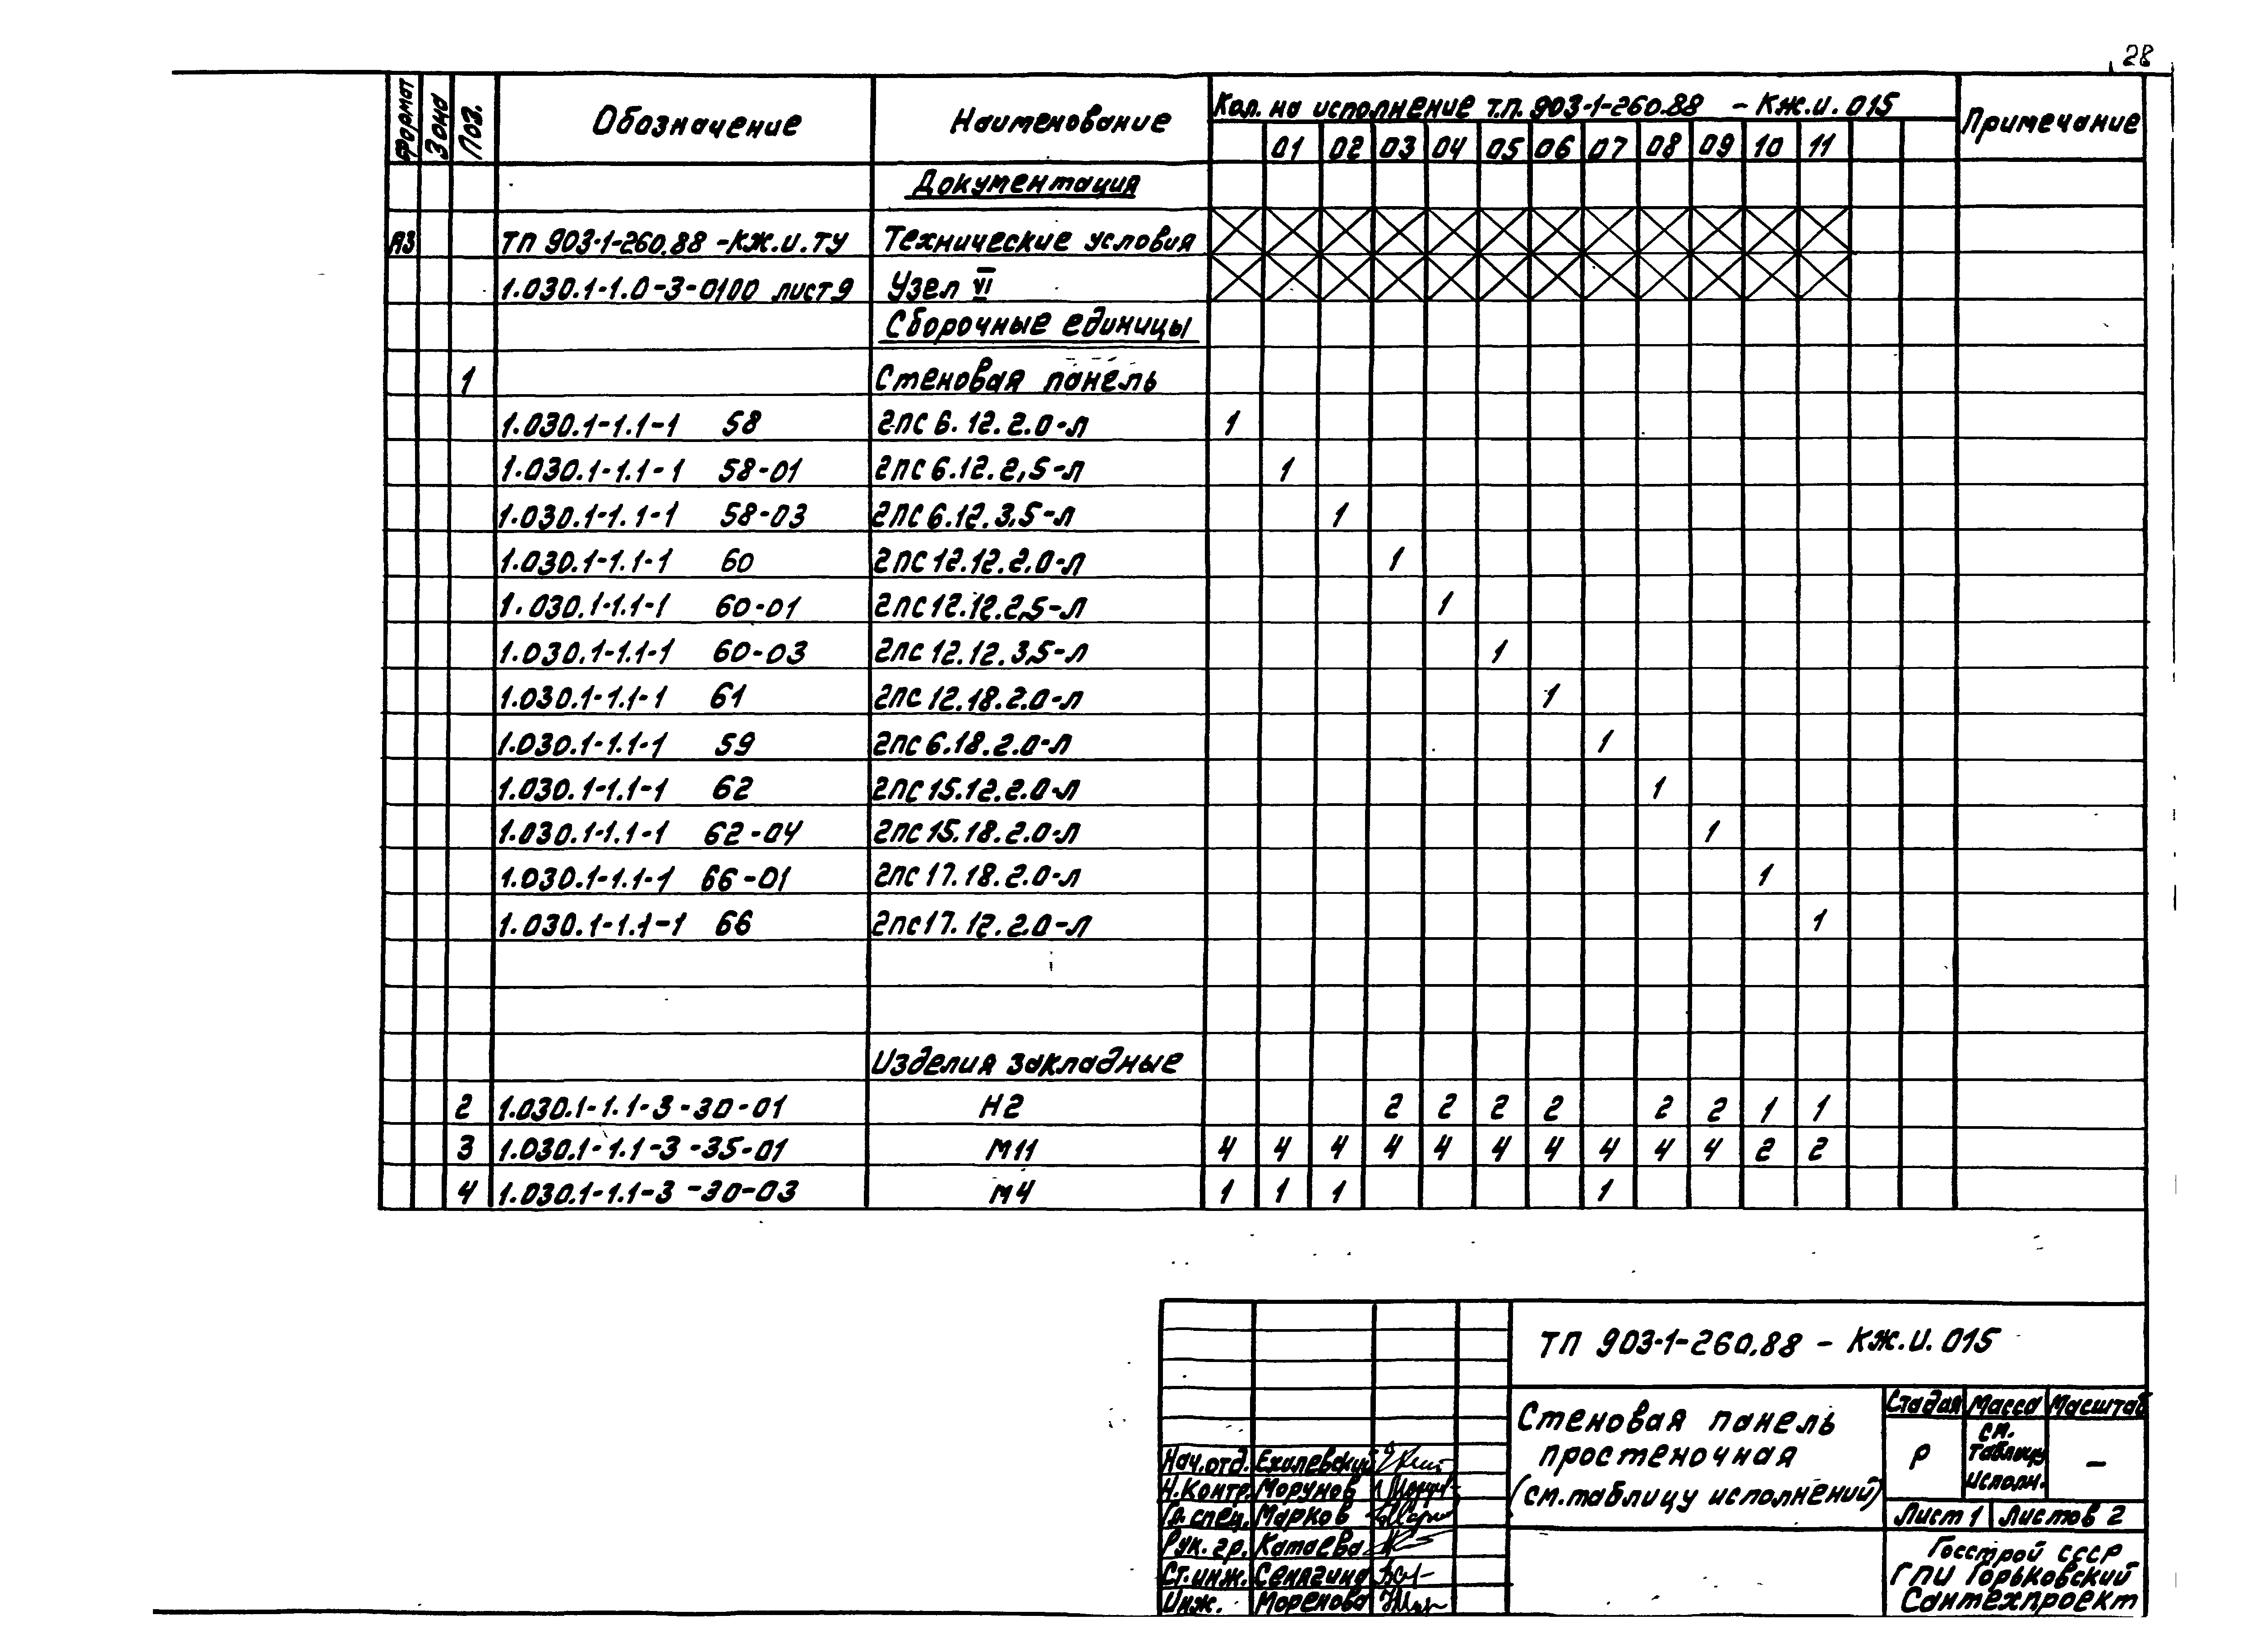 28
Формат Зона Поз. Обозначение Наименование Кол. на исполнение т.п. 903-1-260.88 - КЖ.И. 015 Примечание
01 02 03 04 05 06 07 08 09 10 11
Документация
А3 ТП 903-1-260.88 -КЖ.И.ТУ Технические условия
1.030.1-1.0-3-0100 лист 9 Узел VI
Сборочные единицы
1 Стеновая панель
1.030.1-1.1-1 58 2ПС 6.12.2.0-Л 1
1.030.1-1.1-1 58-01 2ПС 6.12.2,5-Л 1
1.030.1-1.1-1 58-03 2ПС 6.12.3,5-Л 1
1.030.1-1.1-1 60 2ПС 12.12.2.0-Л 1
1.030.1-1.1-1 60-01 2ПС 12.12.2,5-Л 1
1.030.1-1.1-1 60-03 2ПС 12.12.3,5-Л 1
1.030.1-1.1-1 61 2ПС 12.18.2.0-Л 1
1.030.1-1.1-1 59 2ПС 6.18.2.0-Л 1
1.030.1-1.1-1 62 2ПС 15.12.2.0-Л 1
1.030.1-1.1-1 62-04 2ПС 15.18.2.0-Л 1
1.030.1-1.1-1 66-01 2ПС 17.18.2.0-Л 1
1.030.1-1.1-1 66 2ПС 17.12.2.0-Л 1
Изделия закладные
2 1.030.1-1.1-3-30-01 Н2 2 2 2 2 2 2 1 1
3 1.030.1-1.1-3-35-01 М11 4 4 4 4 4 4 4 4 4 4 2 2
4 1.030.1-1.1-3-30-03 М4 1 1 1 1
ТП 903-1-260.88 - КЖ.И. 015
Стеновая панель
простеночная
(см. таблицу исполнений)
Стадия Масса Масштаб
Р см. таблицу исполн. -
Лист 1 Листов 2
Нач. отд. Ехилевский
Н. контр. Морунов
Гл. спец. Марков
Рук. гр. Катаева
Ст. инж. Сенягина
Инж. Моренова
Госстрой СССР
ГПИ Горьковский
Сантехпроект